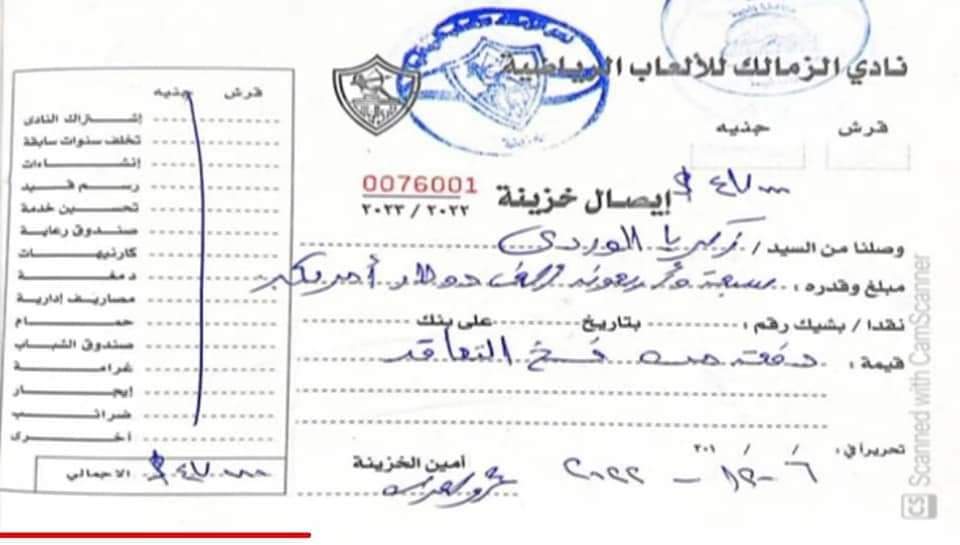 نادي الزمالك للألعاب الرياضية
قرش جنيه
$ ٤٧٠٠٠
إيصال خزينة
0076001
٢٠٢٢ / ٢٠٢٣
وصلنا من السيد / زكريا الوردى
مبلغ وقدره : سبعة وأربعون ألف دولار أمريكى
نقدا / بشيك رقم : بتاريخ على بنك
قيمة : دفعة من فسخ التعاقد
تحريرا في : / / ٢٠١
٦ - ١٢ - ٢٠٢٢
أمين الخزينة
قرش جنيه
إشتراك النادى
تخلف سنوات سابقة
إنشاءات
رسم قيد
تحسين خدمة
صندوق رعاية
كارنيهات
دمغة
مصاريف إدارية
حمام
صندوق الشباب
غرامة
إيجار
ضرائب
أخرى
الاجمالى $ ٤٧٠٠٠
CS Scanned with CamScanner